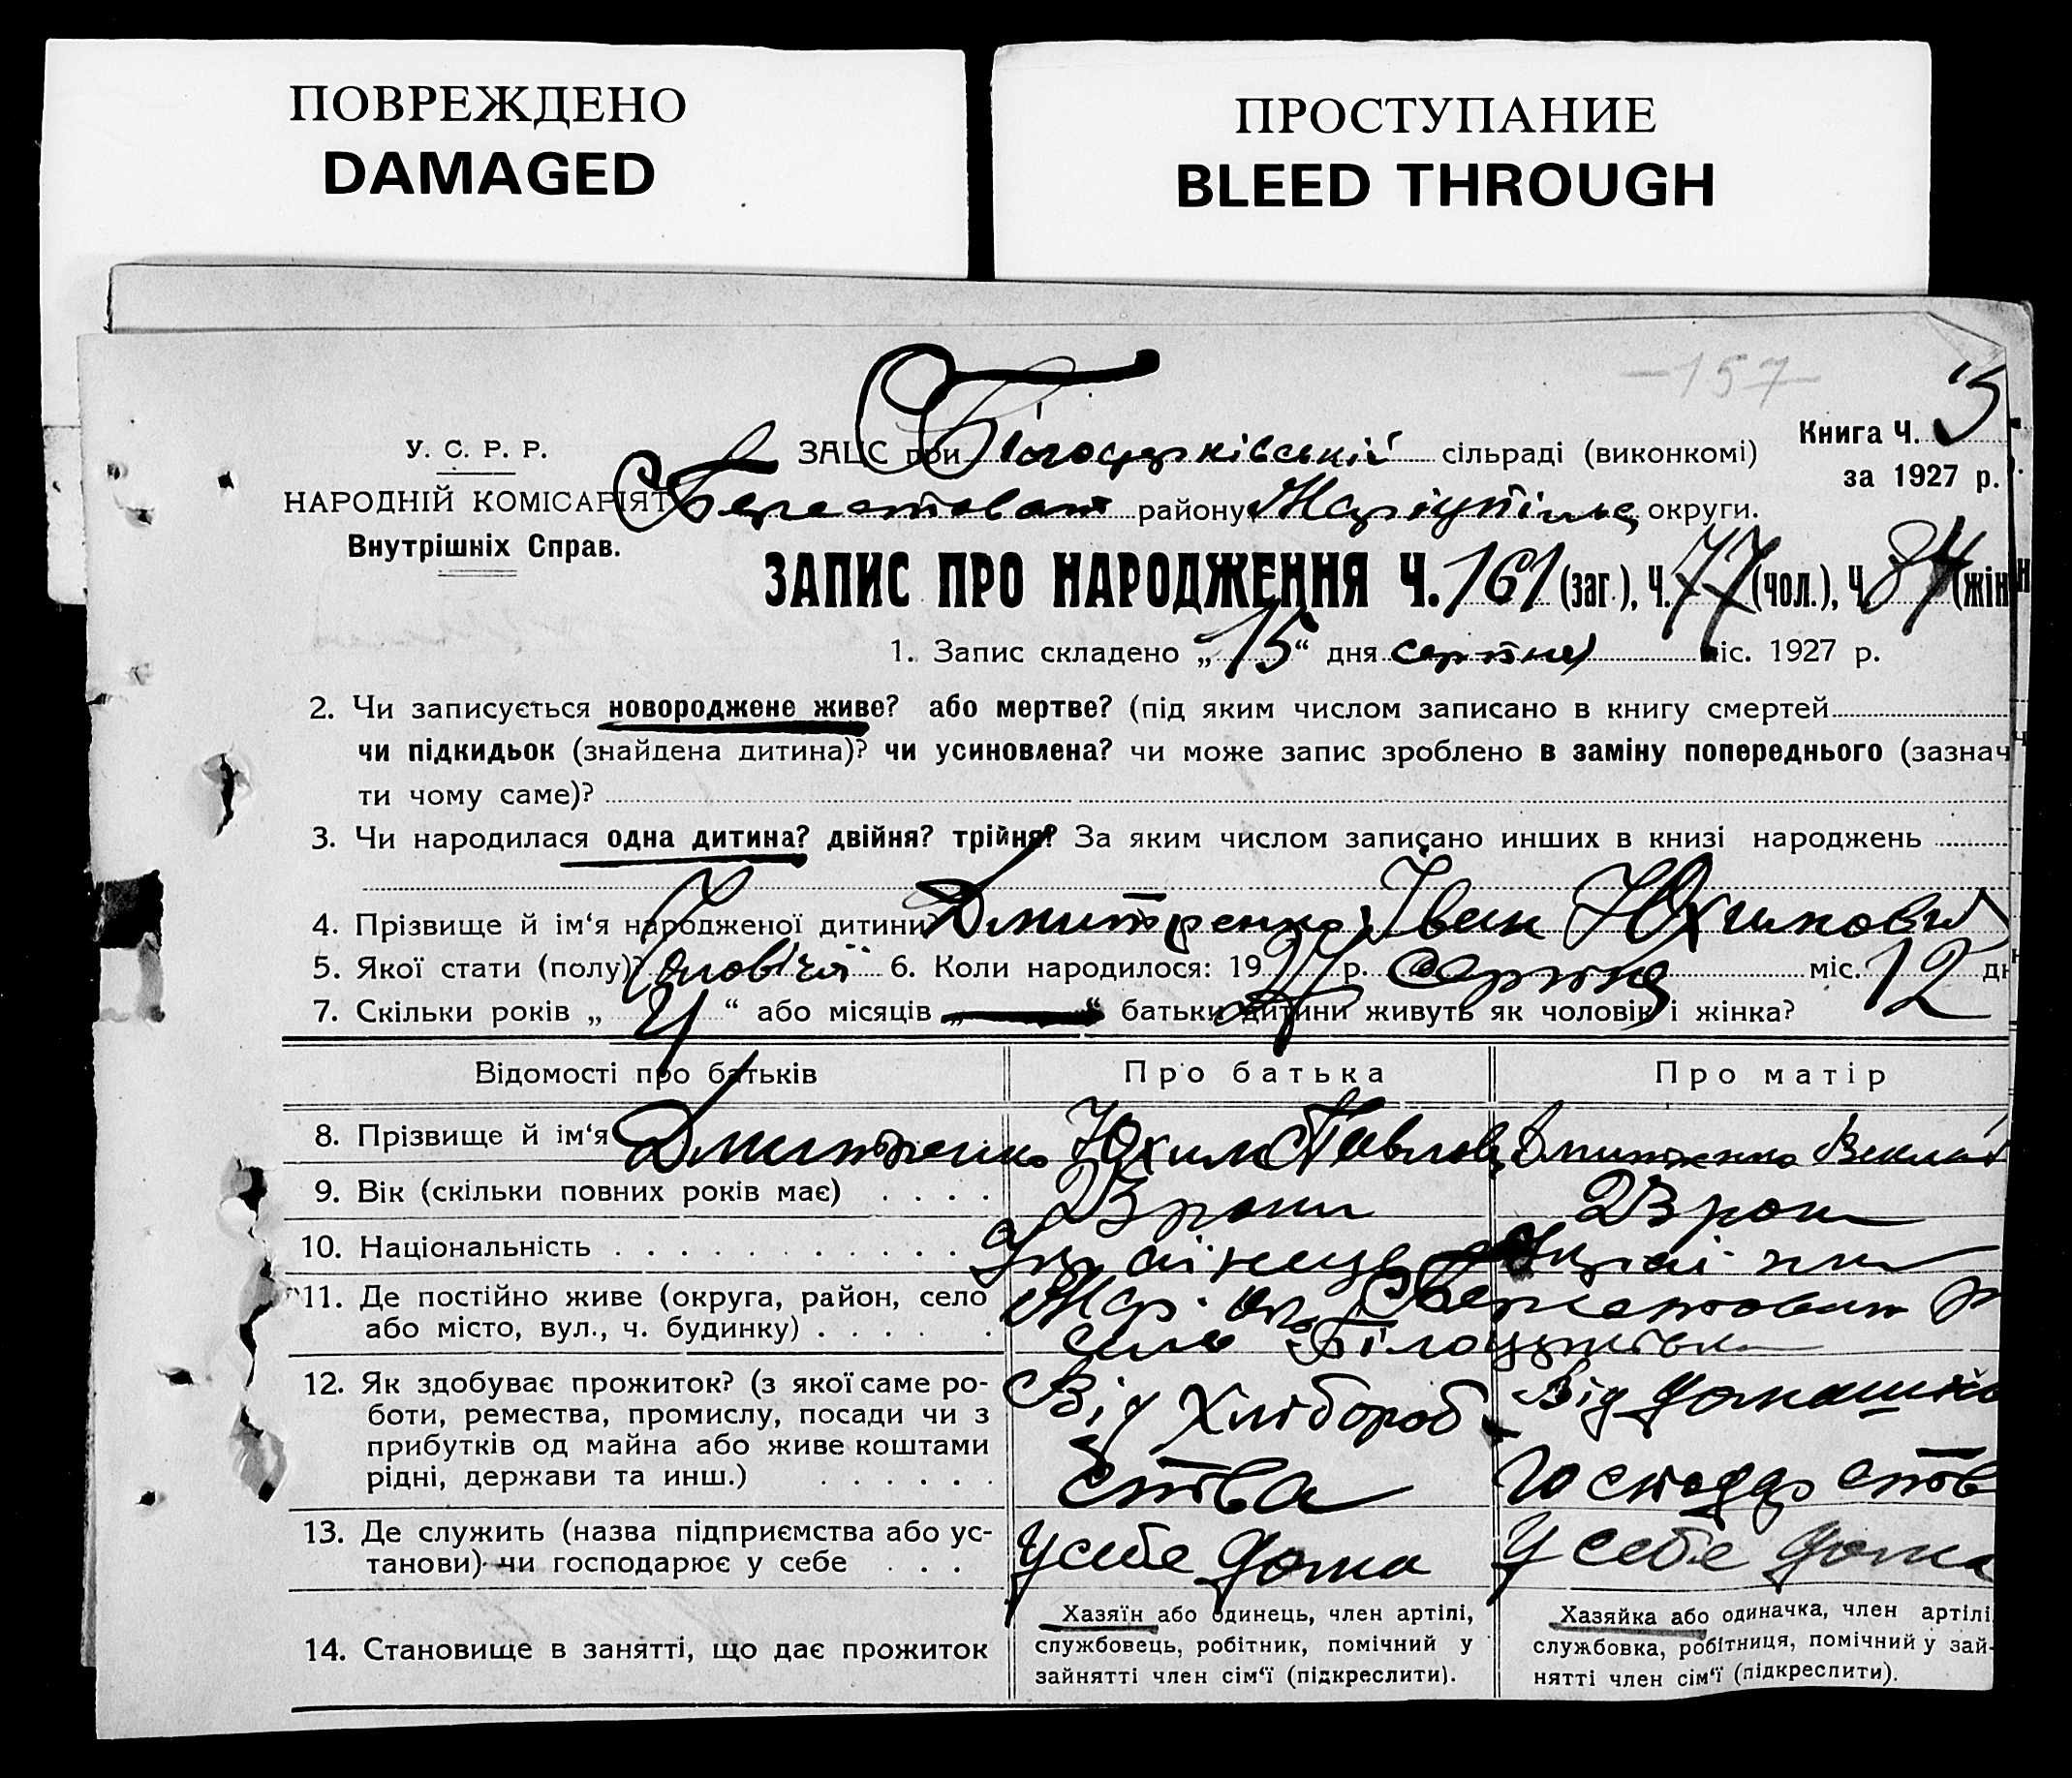 ПОВРЕЖДЕНО
DAMAGED
ПРОСТУПАНИЕ
BLEED THROUGH
-157-
У. С. Р. Р.
НАРОДНІЙ КОМІСАРІЯТ
Внутрішніх Справ.
ЗАЦС при Білоцерківській сільраді (виконкомі)
Берестован району Маріупільс округи.
Книга Ч. 5
за 1927 р.
ЗАПИС ПРО НАРОДЖЕННЯ Ч. 161 (заг.), Ч. 77 (чол.), Ч. 84 (жін
1. Запис складено „ 15 “ дня серпня міс. 1927 р.
2. Чи записується новороджене живе? або мертве? (під яким числом записано в книгу смертей
чи підкидьок (знайдена дитина)? чи усиновлена? чи може запис зроблено в заміну попереднього (зазнач
ти чому саме)?
3. Чи народилася одна дитина? двійня? трійня? За яким числом записано инших в книзі народжень
4. Прізвище й ім‘я народженої дитини Дмитренко Іван Юхимович
5. Якої стати (полу)? чоловічої 6. Коли народилося: 1927 р. серпня міс. 12 дн
7. Скільки років „ 4 “ або місяців „ “ батьки дитини живуть як чоловік і жінка?
Відомості про батьків
Про батька
Про матір
8. Прізвище й ім‘я Дмитренко Юхим Павлов Дмитренко
9. Вік (скільки повних років має) . . . .
23 роки
23 роки
10. Національність . . . . . . . . . . .
Українець
11. Де постійно живе (округа, район, село
або місто, вул., ч. будинку) . . . . . .
Мар. ок. Берестован р
село Білоцерківка
12. Як здобуває прожиток? (з якої саме ро-
боти, ремества, промислу, посади чи з
прибутків од майна або живе коштами
рідні, держави та инш.) . . . . . .
Від хлібороб
ства
Від домашнього
господарств
13. Де служить (назва підприємства або ус-
танови) чи господарює у себе . . .
У себе дома
У себе дома
14. Становище в занятті, що дає прожиток
Хазяїн або одинець, член артілі,
службовець, робітник, помічний у
зайнятті член сім‘ї (підкреслити).
Хазяйка або одиначка, член артілі,
службовка, робітниця, помічний у зай-
нятті член сім‘ї (підкреслити).